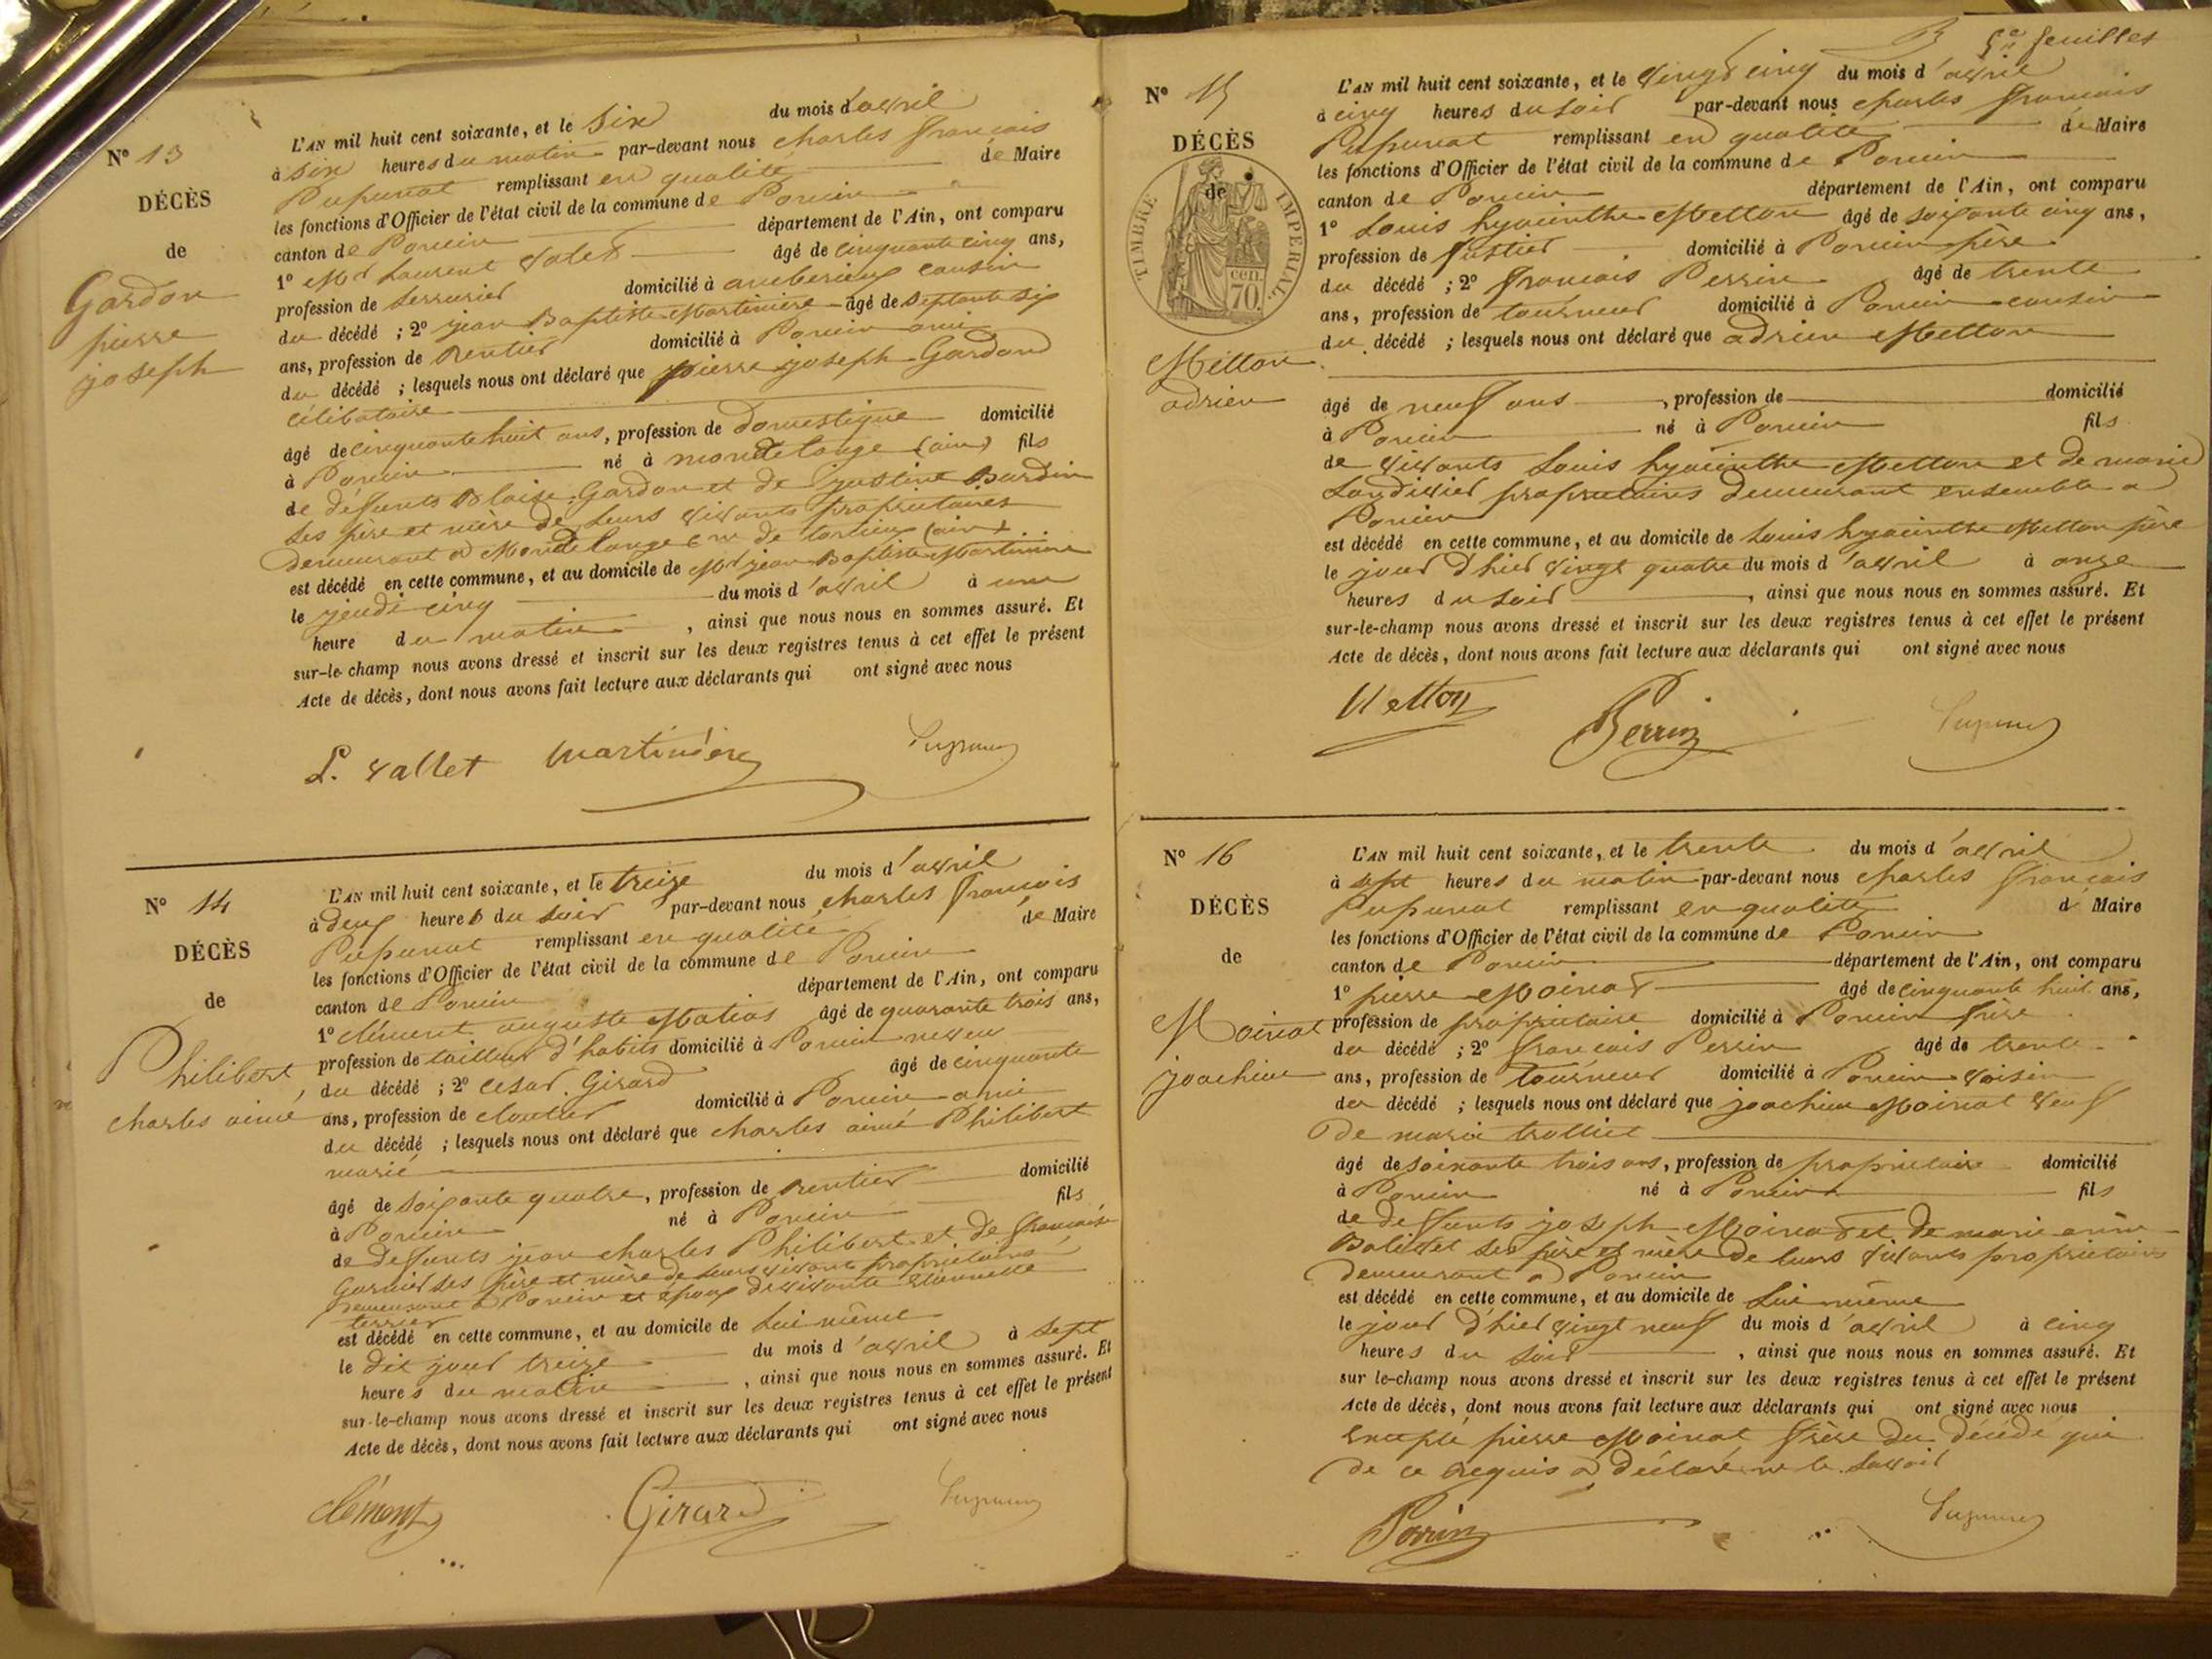 N° 13
DÉCÈS
de
Gardon
pierre
joseph
L'AN mil huit cent soixante, et le Six du mois d'avril
à Six heures du matin par-devant nous charles francois
Pupunat remplissant en qualité de Maire
les fonctions d'Officier de l'état civil de la commune de Poncin
canton de Poncin département de l'Ain, ont comparu
1° Mr Laurent Valet âgé de cinquante cinq ans,
profession de serrurier domicilié à amberieux cousin
du décédé ; 2° jean Baptiste Martiniere âgé de septante six
ans, profession de Rentier domicilié à Poncin ami
du décédé ; lesquels nous ont déclaré que pierre joseph Gardond
célibataire
âgé de cinquante huit ans, profession de domestique domicilié
à Poncin né à (ain) fils
de défunts Blaise Gardon et de justine Bardin
ses père et mère de leurs vivants propriétaires
demeurant a (ain)
est décédé en cette commune, et au domicile de Mr jean Baptiste Martiniere
le jeudi cinq du mois d'avril à une
heure du matin , ainsi que nous nous en sommes assuré. Et
sur-le-champ nous avons dressé et inscrit sur les deux registres tenus à cet effet le présent
Acte de décès, dont nous avons fait lecture aux déclarants qui ont signé avec nous
L. Vallet Martiniere
N° 14
DÉCÈS
de
Philibert
charles aimé
L'AN mil huit cent soixante, et le treize du mois d'avril
à deux heures du soir par-devant nous charles francois
Pupunat remplissant en qualité de Maire
les fonctions d'Officier de l'état civil de la commune de Poncin
canton de Poncin département de l'Ain, ont comparu
1° clément auguste Matias âgé de quarante trois ans,
profession de tailleur d'habits domicilié à Poncin neveu
du décédé ; 2° cesar Girard âgé de cinquante
ans, profession de cloutier domicilié à Poncin ami
du décédé ; lesquels nous ont déclaré que charles aimé Philibert
marié
âgé de soixante quatre, profession de Rentier domicilié
à Poncin né à Poncin fils
de defunts jean charles Philibert et de francoise
Garnier ses père et mère de leurs vivants propriétaires
demeurant a Poncin et epoux de vivante etiennette
terrier
est décédé en cette commune, et au domicile de lui même
le dit jour treize du mois d'avril à sept
heures du matin , ainsi que nous nous en sommes assuré. Et
sur-le-champ nous avons dressé et inscrit sur les deux registres tenus à cet effet le présent
Acte de décès, dont nous avons fait lecture aux déclarants qui ont signé avec nous
clément Girard
5e feuillet
N° 15
DÉCÈS
de
TIMBRE IMPERIAL.
70. cen.
Metton
adrien
L'AN mil huit cent soixante, et le vingt cinq du mois d'avril
à cinq heures du soir par-devant nous charles francois
Pupunat remplissant en qualité de Maire
les fonctions d'Officier de l'état civil de la commune de Poncin
canton de Poncin département de l'Ain, ont comparu
1° Louis hyacinthe Metton âgé de soixante cinq ans,
profession de domicilié à Poncin père
du décédé ; 2° francois Perrin âgé de trente
ans, profession de tourneur domicilié à Poncin cousin
du décédé ; lesquels nous ont déclaré que adrien Metton
âgé de neuf ans , profession de domicilié
à Poncin né à Poncin fils
de vivants Louis hyacinthe Metton et de marie
propriétaires demeurant ensemble a
Poncin
est décédé en cette commune, et au domicile de Louis hyacinthe Metton père
le jour d'hier vingt quatre du mois d'avril à onze
heures du soir , ainsi que nous nous en sommes assuré. Et
sur-le-champ nous avons dressé et inscrit sur les deux registres tenus à cet effet le présent
Acte de décès, dont nous avons fait lecture aux déclarants qui ont signé avec nous
Metton Perrin
N° 16
DÉCÈS
de
Moinat
joachim
L'AN mil huit cent soixante, et le trente du mois d'avril
à sept heures du matin par-devant nous charles francois
Pupunat remplissant en qualité d Maire
les fonctions d'Officier de l'état civil de la commune de Poncin
canton de Poncin département de l'Ain, ont comparu
1° pierre Moinat âgé de cinquante huit ans,
profession de propriétaire domicilié à Poncin frère
du décédé ; 2° francois Perrin âgé de trente
ans, profession de tourneur domicilié à Poncin voisin
du décédé ; lesquels nous ont déclaré que joachim Moinat veuf
de marie trolliet
âgé de soixante trois ans, profession de propriétaire domicilié
à Poncin né à Poncin fils
de defunts joseph Moinat et de marie anne
ses père et mère de leurs vivants propriétaires
demeurant a Poncin
est décédé en cette commune, et au domicile de lui même
le jour d'hier vingt neuf du mois d'avril à cinq
heures du soir , ainsi que nous nous en sommes assuré. Et
sur le-champ nous avons dressé et inscrit sur les deux registres tenus à cet effet le présent
Acte de décès, dont nous avons fait lecture aux déclarants qui ont signé avec nous
excepté pierre Moinat frère du décédé qui
de ce requis a déclaré ne le savoir
Perrin